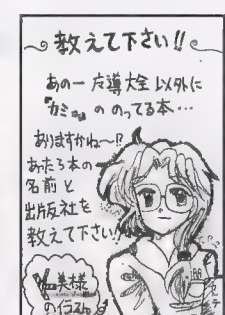 教えて下さい!!
あの一 友導大全 以外に
『カミュ』の のってる本…
ありますかね〜!?
あったら本の
名前と
出版社を
教えて下さい!!
美様
のイラスト